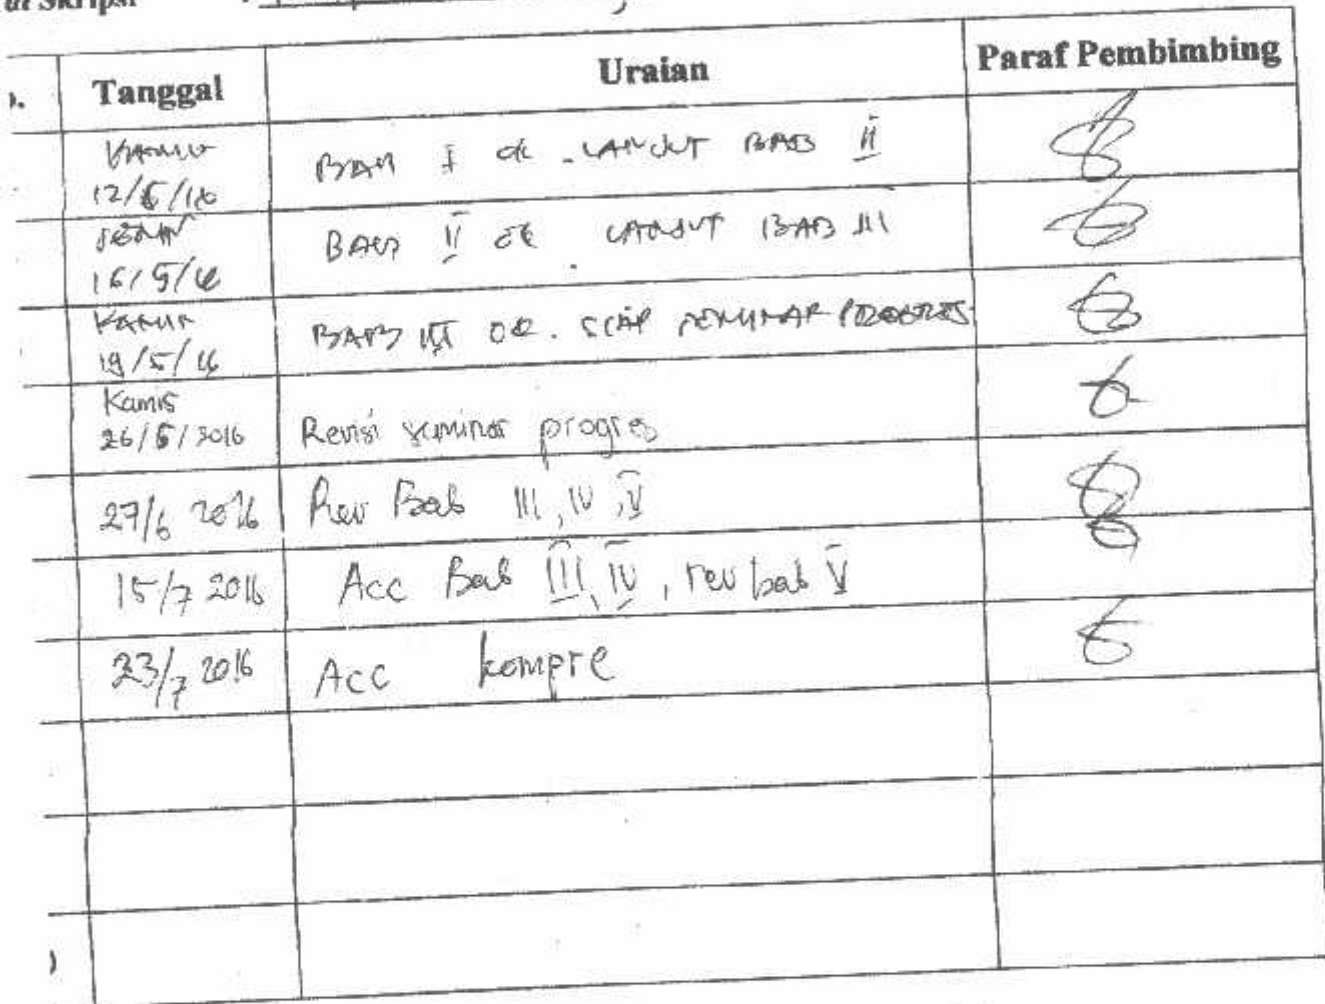 Skripsi :
. Tanggal Uraian Paraf Pembimbing
Kamis
12/5/16 BAB I OK . LANJUT BAB II
SENIN
16/5/16 BAB II OK LANJUT BAB III
Kamis
19/5/16 BAB III OK . SIAP SEMINAR PROGRES
Kamis
26/5/3016 Revisi seminar progres
27/6 2016 Rev Bab III, IV, V
15/7 2016 Acc Bab III, IV, rev bab V
23/7 2016 Acc kompre
)